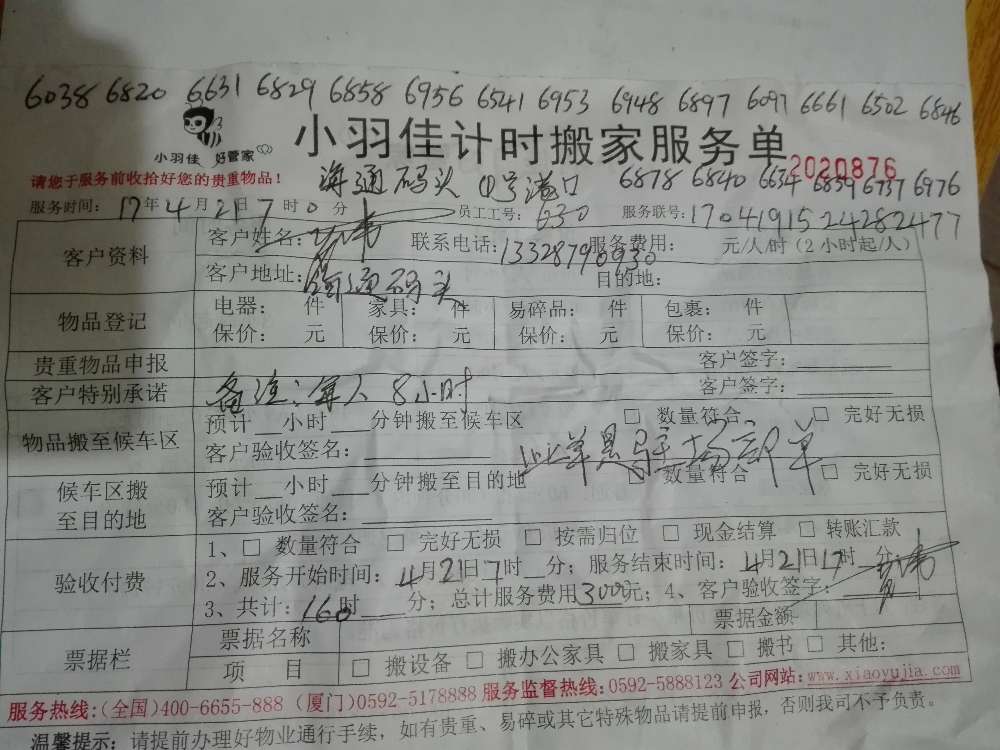 6038 6820 6631 6829 6858 6956 6541 6953 6948 6897 6097 6661 6502 6846
小羽佳 好管家
小羽佳计时搬家服务单
2020876
请您于服务前收拾好您的贵重物品！
海通码头 号 口 6878 6840 6634 6859 6737 6976
服务时间：17年4月21日7时0分 员工工号：630 服务联号：17041915 24282477
客户资料
客户姓名： 联系电话： 服务费用： 元/人/时（2小时起/人）
客户地址：海通码头 目的地：
物品登记
电器： 件 家具： 件 易碎品： 件 包裹： 件
保价： 元 保价： 元 保价： 元 保价： 元
贵重物品申报 客户签字：
客户特别承诺 备注：每人8小时 客户签字：
物品搬至候车区
预计 小时 分钟搬至候车区 □ 数量符合 □ 完好无损
客户验收签名： 此单是驻场部单
候车区搬至目的地
预计 小时 分钟搬至目的地 □ 数量符合 □ 完好无损
客户验收签名：
验收付费
1、□ 数量符合 □ 完好无损 □ 按需归位 □ 现金结算 □ 转账汇款
2、服务开始时间：4月21日7时 分；服务结束时间：4月21日17时 分
3、共计：160时 分；总计服务费用3000元；4、客户验收签字：
票据栏
票据名称 票据金额
项 目 □ 搬设备 □ 搬办公家具 □ 搬家具 □ 搬书 □ 其他：
服务热线：(全国)400-6655-888 (厦门)0592-5178888 服务监督热线：0592-5888123 公司网站：www.xiaoyujia.com
温馨提示：请提前办理好物业通行手续，如有贵重、易碎或其它特殊物品请提前申报，否则我司不予负责。